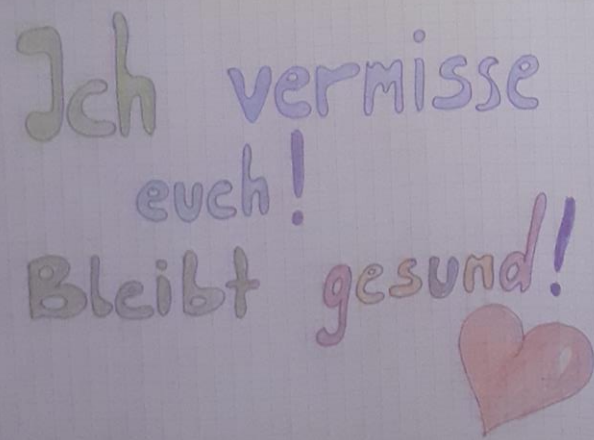 Ich vermisse
euch!
Bleibt gesund!